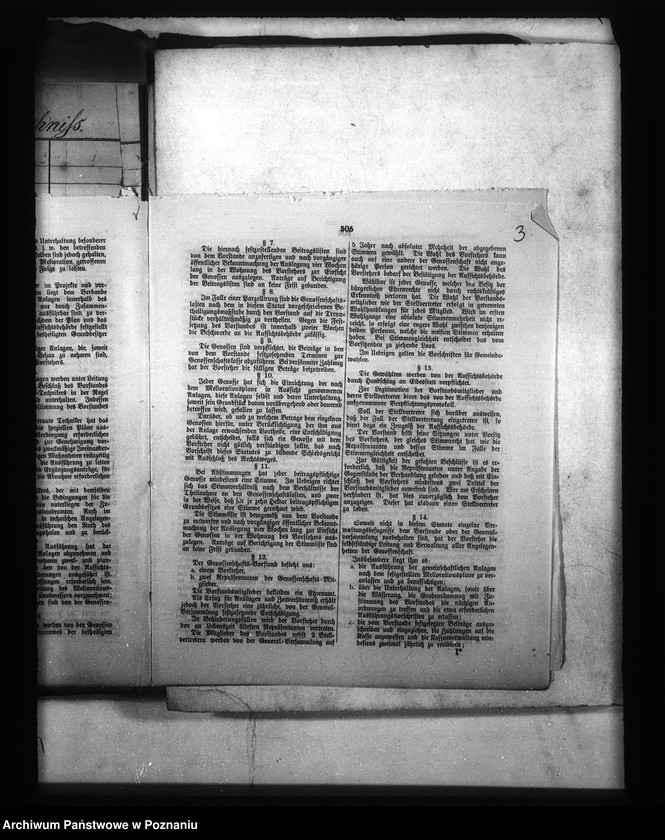 hniss.
Unterhaltung besonderer
s. w. den betreffenden
selben sind jedoch gehalten,
Melioration getroffenen
Folge zu leisten.
er im Projekte und vor-
liegt den Verbands
Anlagen innerhalb des
nur durch Zusammen-
ausführbar sind, zu ver-
der Plan und das
Aufsichtsbehörde festgestellt
betheiligten Grundbesitzer
ger Anlagen, die, soweit
Gehau zu nehmen sind,
Vorstehers.
agen werden unter Leitung
Beschluß des Vorstandes
-Technikers in der Regel
unterhalten. Indessen
stimmung des Vorstandes
Techniker hat das
die speziellen Pläne aus-
Verdingung erforderlichen
zur Genehmigung vor-
zweckmäßige Ineinander-
Maßnahmen rechtzeitig
die Ausführung zu leiten
und Ergänzungsanträge, für
die Abnahme erforderlichen
nikers, der mit demselben
die Bedingungen für die
unterliegen der Zu-
Auch im
in technischen Angelegen-
führung den Rath des
zuholen und zu berück-
Ausführung hat der
Anlagen abzunehmen und
zweck- und plan-
von der Aufsichts-
ausgeführt ist.
erforderlich sind,
des Meliorations-
Landmessers vorzunehmen;
sind von der Genossen-
werden von den Genossen
betheiligten
505
3
§ 7.
Die hiernach festzustellenden Beitragslisten sind
von dem Vorstande anzufertigen und nach vorgängiger
öffentlicher Bekanntmachung der Auslegung vier Wochen
lang in der Wohnung des Vorstehers zur Einsicht
der Genossen auszulegen. Anträge auf Berichtigung
der Beitragslisten sind an keine Frist gebunden.
§ 8.
Im Falle einer Parzellirung sind die Genossenschafts-
lasten nach dem in diesem Statut vorgeschriebenen Be-
theiligungsmaßstabe durch den Vorstand auf die Trenn-
stücke verhältnißmäßig zu vertheilen. Gegen die Fest-
setzung des Vorstandes ist innerhalb zweier Wochen
die Beschwerde an die Aufsichtsbehörde zulässig.
§ 9.
Die Genossen sind verpflichtet, die Beiträge in den
von dem Vorstande festzusetzenden Terminen zur
Genossenschaftskasse abzuführen. Bei versäumter Zahlung
hat der Vorsteher die fälligen Beträge beizutreiben.
§ 10.
Jeder Genosse hat sich die Einrichtung der nach
dem Meliorationsplane in Aussicht genommenen
Anlagen, diese Anlagen selbst und deren Unterhaltung,
soweit sein Grundstück davon vorübergehend oder dauernd
betroffen wird, gefallen zu lassen.
Darüber, ob und zu welchem Betrage dem einzelnen
Genossen hierfür, unter Berücksichtigung der ihm aus
der Anlage erwachsenden Vortheile, eine Entschädigung
gebührt, entscheidet, falls sich ein Genosse mit dem
Vorsteher nicht gütlich verständigen sollte, das nach
Vorschrift dieses Statutes zu bildende Schiedsgericht
mit Ausschluß des Rechtsweges.
§ 11.
Bei Abstimmungen hat jeder beitragspflichtige
Genosse mindestens eine Stimme. Im Uebrigen richtet
sich das Stimmverhältniß nach dem Verhältnisse der
Theilnahme an den Genossenschaftslasten, und zwar
in der Weise, daß für je zehn Hektar beitragspflichtigen
Grundbesitzes eine Stimme gerechnet wird.
Die Stimmliste ist demgemäß von dem Vorstande
zu entwerfen und nach vorgängiger öffentlicher Bekannt-
machung der Auslegung vier Wochen lang zur Einsicht
der Genossen in der Wohnung des Vorstehers aus-
zulegen. Anträge auf Berichtigung der Stimmliste sind
an keine Frist gebunden.
§ 12.
Der Genossenschafts-Vorstand besteht aus:
a. einem Vorsteher,
b. zwei Repräsentanten der Genossenschafts-Mit-
glieder.
Die Vorstandsmitglieder bekleiden ein Ehrenamt.
Als Ersatz für Auslagen und Zeitversäumniß erhält
jedoch der Vorsteher eine jährliche, von der General-
Versammlung festzusetzende Entschädigung.
In Behinderungsfällen wird der Vorsteher durch
den an Lebenszeit ältesten Repräsentanten vertreten.
Die Mitglieder des Vorstandes nebst 2 Stell-
vertretern werden von der General-Versammlung auf
5 Jahre nach absoluter Mehrheit der abgegebenen
Stimmen gewählt. Die Wahl des Vorstehers kann
auch auf eine andere der Genossenschaft nicht ange-
hörige Person gerichtet werden. Die Wahl des
Vorstehers bedarf der Bestätigung der Aufsichtsbehörde.
Wählbar ist jeder Genosse, welcher den Besitz der
bürgerlichen Ehrenrechte nicht durch rechtskräftiges
Erkenntniß verloren hat. Die Wahl der Vorstands-
mitglieder wie der Stellvertreter erfolgt in getrennten
Wahlhandlungen für jedes Mitglied. Wird im ersten
Wahlgange eine absolute Stimmenmehrheit nicht er-
reicht, so erfolgt eine engere Wahl zwischen denjenigen
beiden Personen, welche die meisten Stimmen erhalten
haben. Bei Stimmengleichheit entscheidet das vom
Vorsitzenden zu ziehende Loos.
Im Uebrigen gelten die Vorschriften für Gemeinde-
wahlen.
§ 13.
Die Gewählten werden von der Aufsichtsbehörde
durch Handschlag an Eidesstatt verpflichtet.
Zur Legitimation der Vorstandsmitglieder und
deren Stellvertreter dient das von der Aufsichtsbehörde
aufgenommene Verpflichtungsprotokoll.
Soll der Stellvertreter sich darüber ausweisen,
daß der Fall der Stellvertretung eingetreten ist, so
dient dazu ein Zeugniß der Aufsichtsbehörde.
Der Vorstand hält seine Sitzungen unter Vorsitz
des Vorstehers, der gleiches Stimmrecht hat wie die
Repräsentanten und dessen Stimme im Falle der
Stimmengleichheit entscheidet.
Zur Gültigkeit der gefaßten Beschlüsse ist es er-
forderlich, daß die Repräsentanten unter Angabe der
Gegenstände der Verhandlung geladen und daß mit Ein-
schluß des Vorstehers mindestens zwei Drittel der
Vorstandsmitglieder anwesend sind. Wer am Erscheinen
verhindert ist, hat dies unverzüglich dem Vorsteher
anzuzeigen. Dieser hat alsdann einen Stellvertreter
zu laden.
§ 14.
Soweit nicht in diesem Statute einzelne Ver-
waltungsbefugnisse dem Vorstande oder der General-
versammlung vorbehalten sind, hat der Vorsteher die
selbstständige Leitung und Verwaltung aller Angelegen-
heiten der Genossenschaft.
Insbesondere liegt ihm ob:
a. die Ausführung der gemeinschaftlichen Anlagen
nach dem festgestellten Meliorationsplane zu ver-
anlassen und zu beaufsichtigen;
b. über die Unterhaltung der Anlagen, sowie über
die Wässerung, die Grabenräumung mit Zu-
stimmung des Vorstandes die nöthigen An-
ordnungen zu treffen und die etwa erforderlichen
Ausführungsvorschriften zu erlassen;
c. die vom Vorstande festgesetzten Beiträge auszu-
schreiben und einzuziehen, die Zahlungen auf die
Kasse anzuweisen und die Kassenverwaltung min-
destens zweimal jährlich zu revidiren;
1*
Archiwum Państwowe w Poznaniu